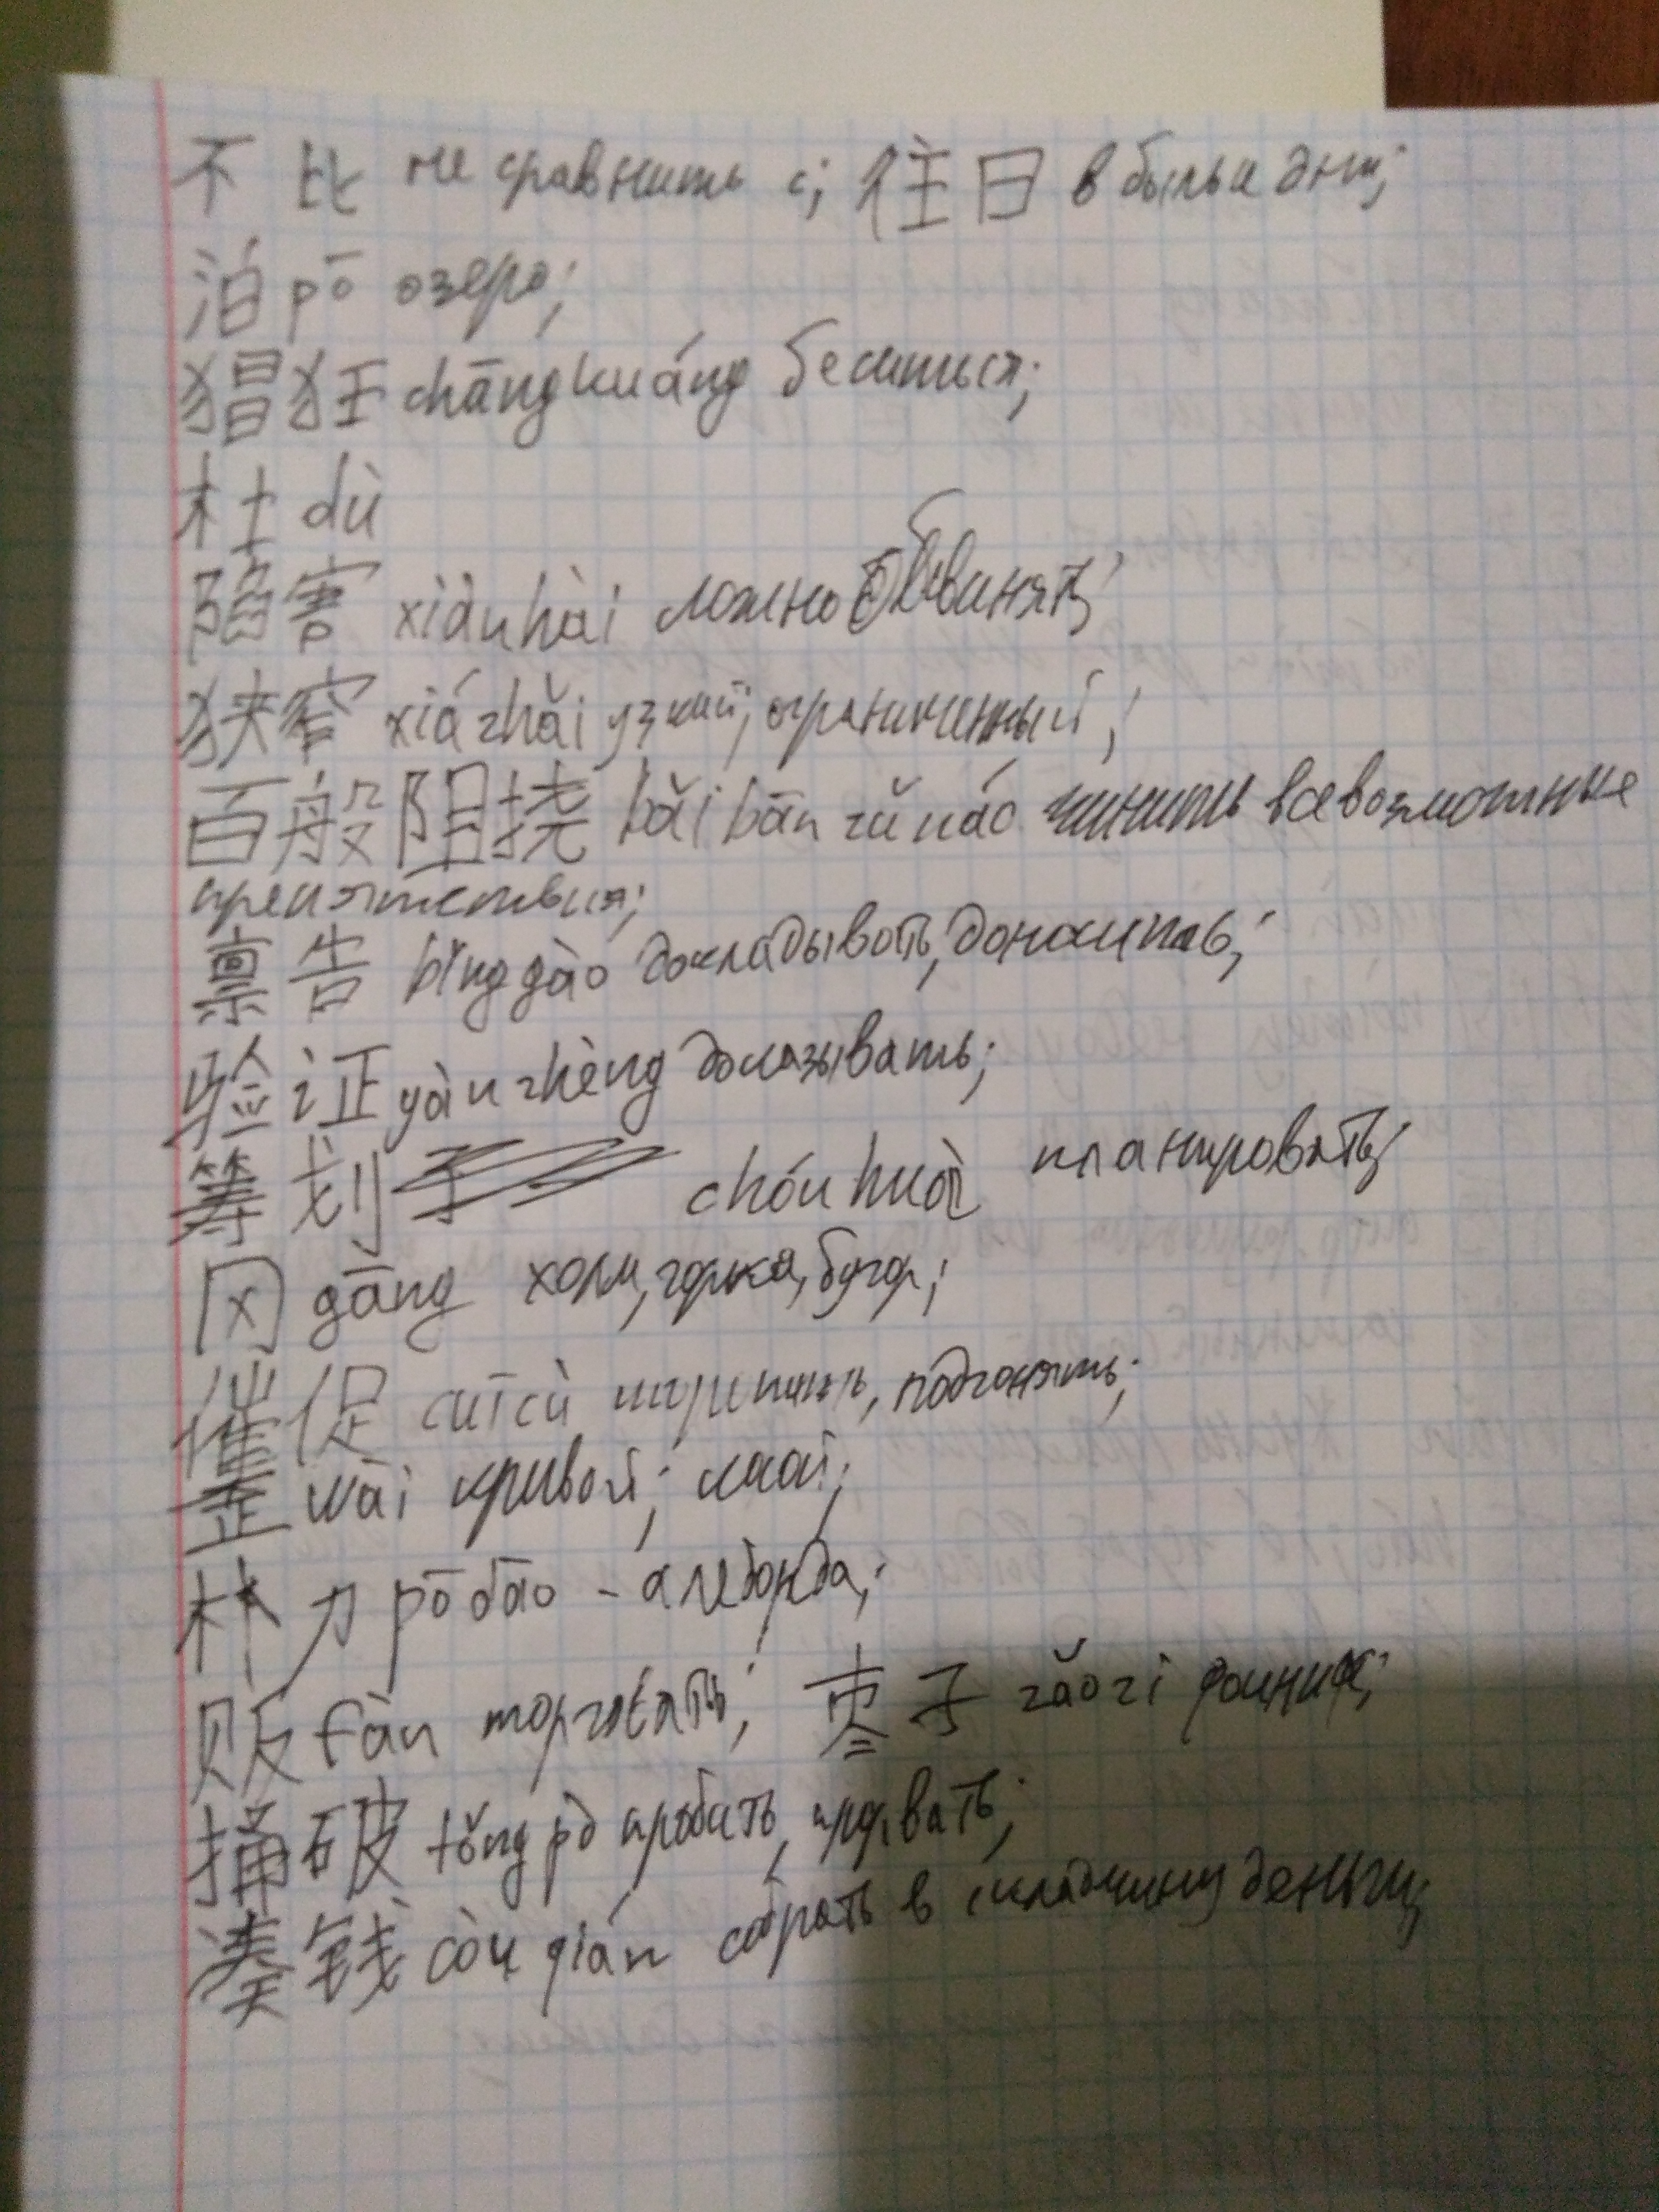 不比 не сравнить с; 往日 в былые дни;
泊 pō озеро;
猖狂 chāngkuáng беситься;
杜 dù
陷害 xiànhài ложно обвинять;
狭窄 xiázhǎi узкий; ограниченный;
百般阻挠 bǎi bān zǔ náo чинить всевозможные
препятствия;
禀告 bǐnggào докладывать, доносить;
验证 yànzhèng доказывать;
筹划 chóuhuà планировать;
冈 gāng холм, горка, бугор;
催促 cuīcù торопить, подгонять;
歪 wāi кривой; косой;
朴刀 pōdāo - алебарда;
贩 fàn торговать; 枣子 zǎozi финик;
捅破 tǒng pò пробить, прорвать;
凑钱 còu qián собрать в складчину деньги